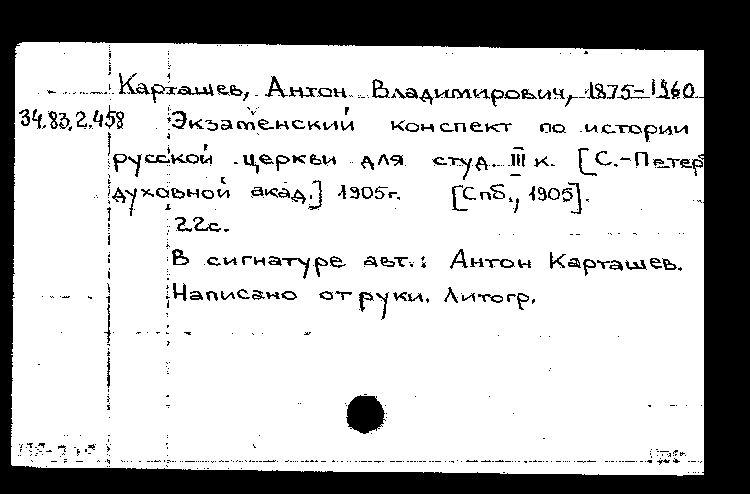 Карташев, Антон Владимирович, 1875-1960
34.83.2.458 Экзаменский конспект по истории
русской церкви для студ. III к. [С.-Петер
духовной акад.] 1905г. [Спб., 1905].
22с.
В сигнатуре авт.: Антон Карташев.
Написано от руки. Литогр.